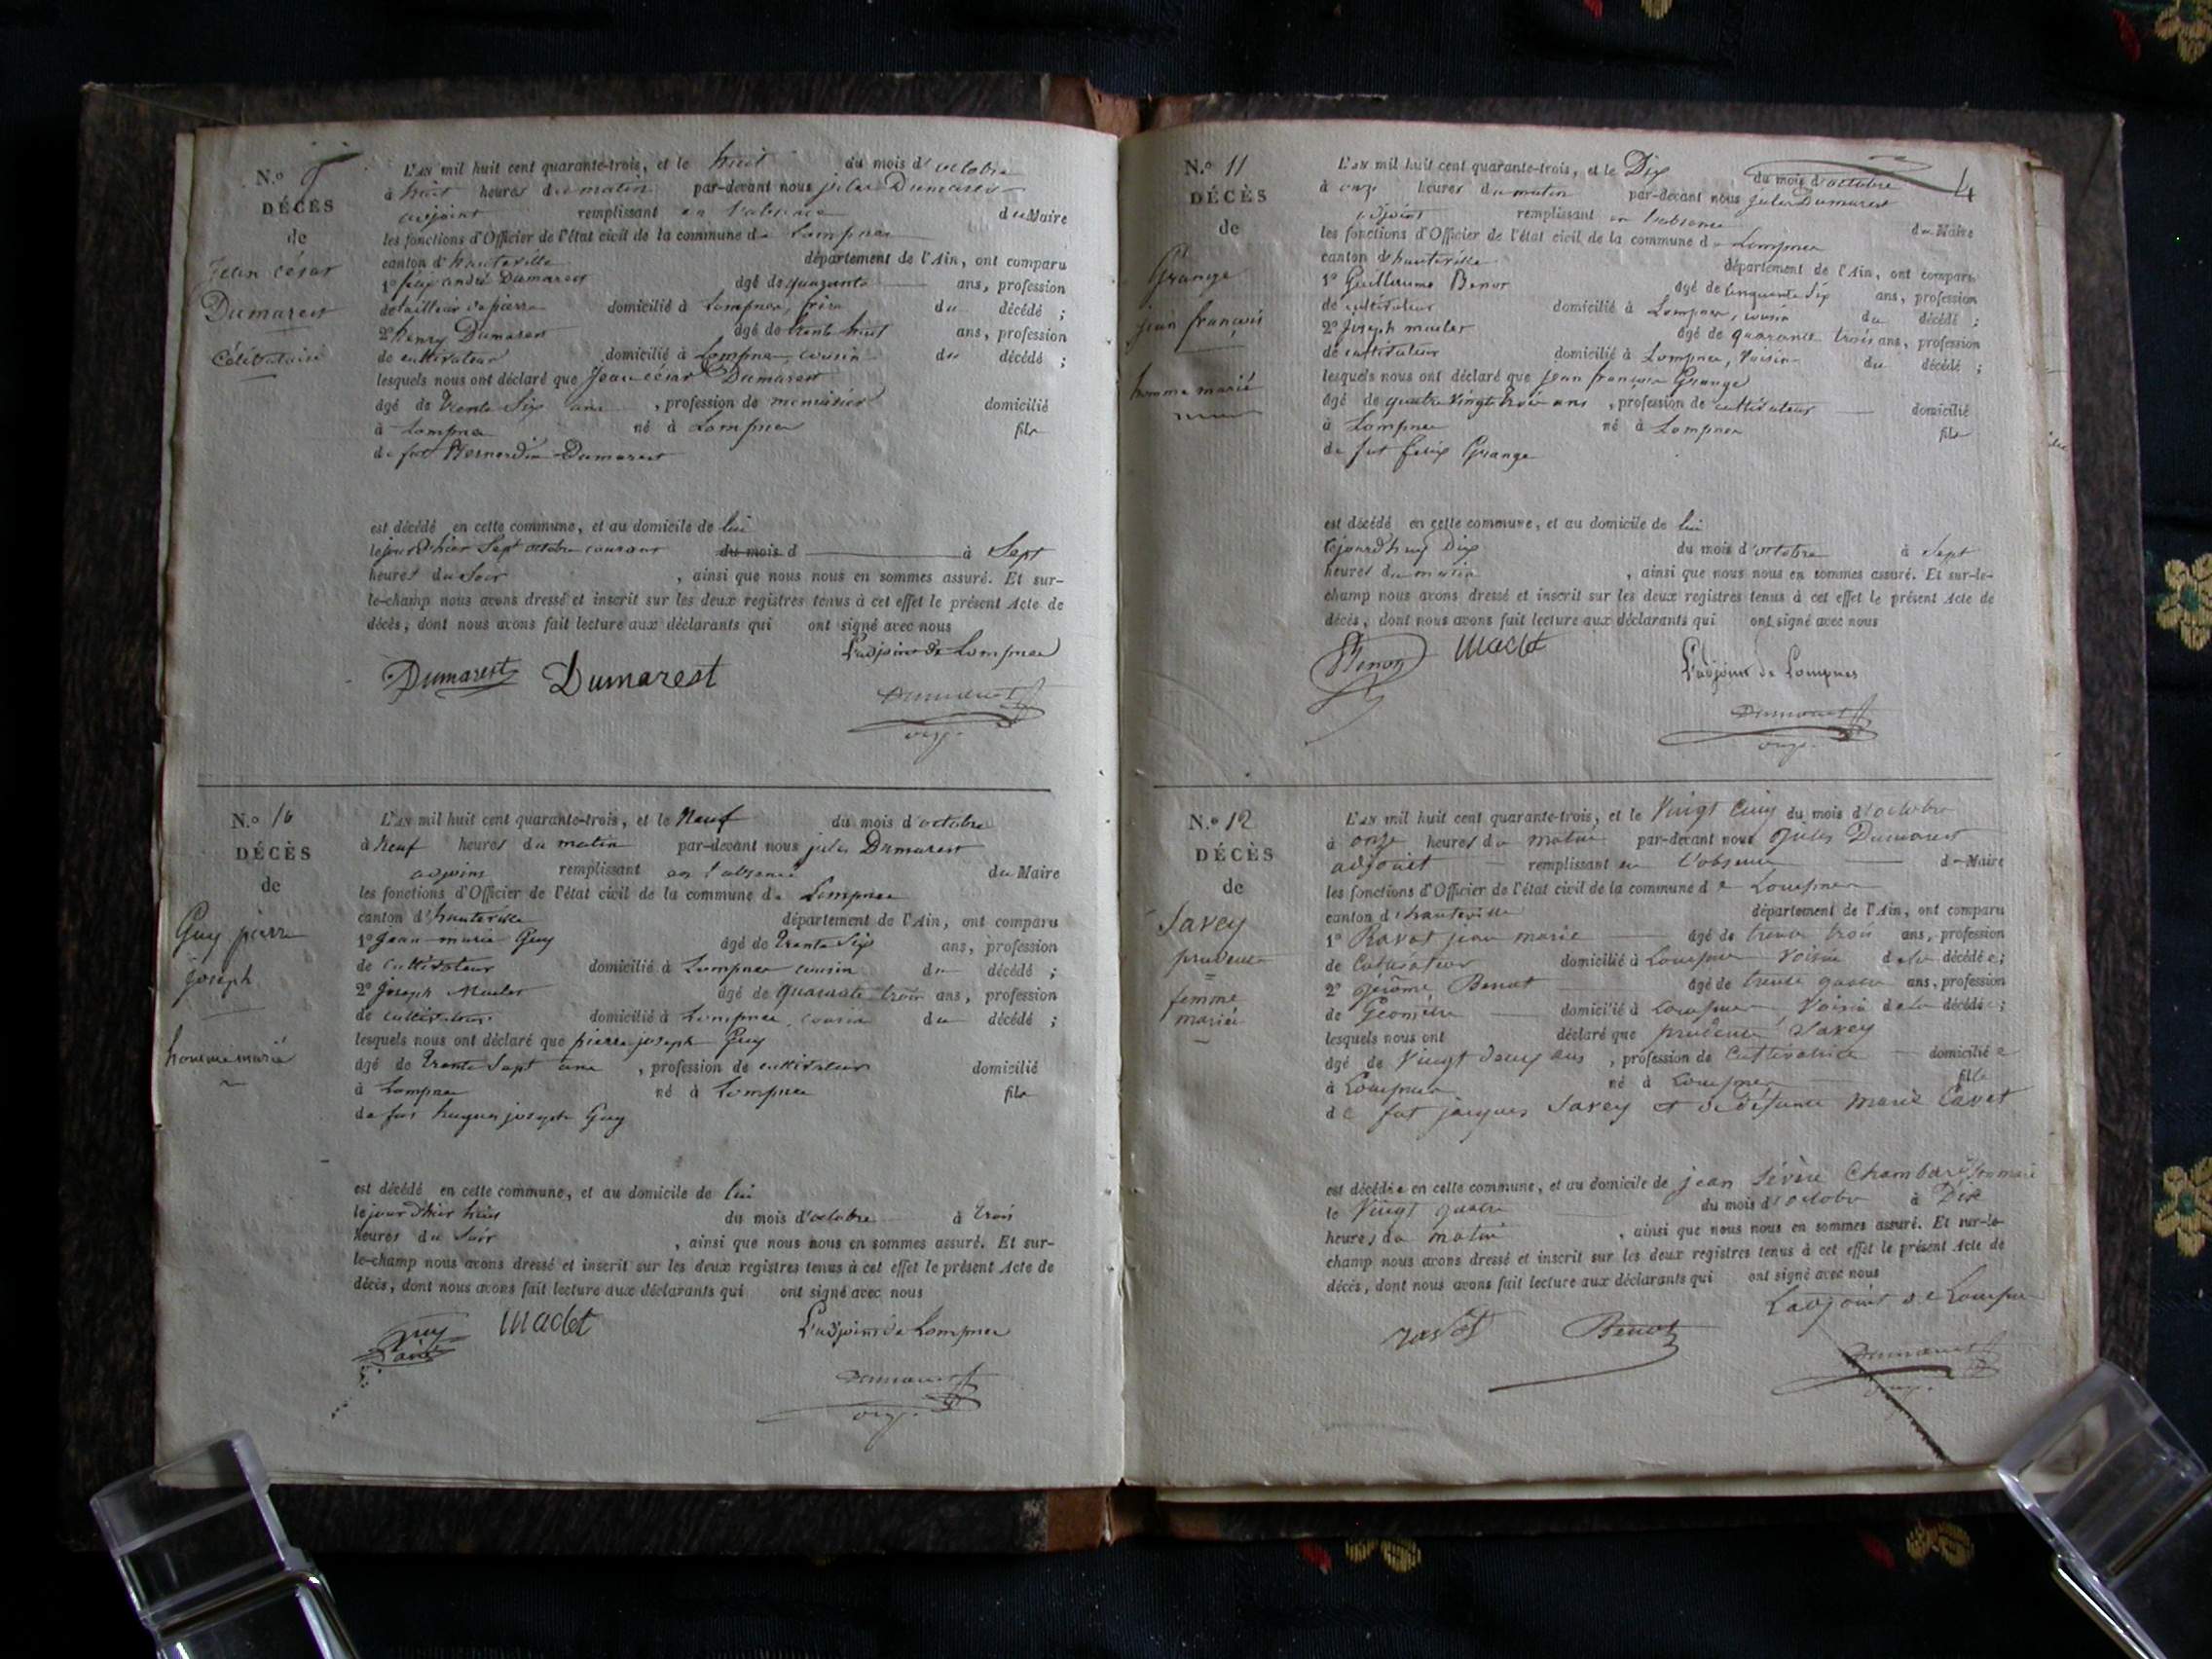 N.º 9
DÉCÈS
de
Jean césar
Dumarest
Célibataire
L'AN mil huit cent quarante-trois, et le huit du mois d'octobre
à huit heures du matin par-devant nous jules Dumarest
adjoint remplissant en l'absence du Maire
les fonctions d'Officier de l'état civil de la commune de Lompnes
canton d'hauteville département de l'Ain, ont comparu
1º félix andré Dumarest âgé de quarante ans, profession
de tailleur de pierre domicilié à Lompnes, frère du décédé ;
2º henry Dumarest âgé de trente huit ans, profession
de cultivateur domicilié à Lompnes, cousin du décédé ;
lesquels nous ont déclaré que Jean césar Dumarest
âgé de trente Six ans , profession de menuisier domicilié
à Lompnes né à Lompnes fils
de fut Bernardin Dumarest
est décédé en cette commune, et au domicile de lui
le jour d'hier Sept octobre courant du mois d à Sept
heures du Soir , ainsi que nous nous en sommes assuré. Et sur-
le-champ nous avons dressé et inscrit sur les deux registres tenus à cet effet le présent Acte de
décès, dont nous avons fait lecture aux déclarants qui ont signé avec nous
L'adjoint de Lompnes
Dumarest Dumarest
Dumarest
N.º 10
DÉCÈS
de
Guy pierre
joseph
homme marié
L'AN mil huit cent quarante-trois, et le Neuf du mois d'octobre
à Neuf heures du matin par-devant nous jules Dumarest
adjoint remplissant en l'absence du Maire
les fonctions d'Officier de l'état civil de la commune de Lompnes
canton d'hauteville département de l'Ain, ont comparu
1º Jean-marie Guy âgé de trente Six ans, profession
de cultivateur domicilié à Lompnes cousin du décédé ;
2º Joseph âgé de quarante trois ans, profession
de cultivateur domicilié à Lompnes, cousin du décédé ;
lesquels nous ont déclaré que pierre joseph Guy
âgé de trente Sept ans , profession de cultivateur domicilié
à Lompnes né à Lompnes fils
de fut hugues joseph Guy
est décédé en cette commune, et au domicile de lui
le jour d'hier huit du mois d'octobre à trois
heures du Soir , ainsi que nous nous en sommes assuré. Et sur-
le-champ nous avons dressé et inscrit sur les deux registres tenus à cet effet le présent Acte de
décès, dont nous avons fait lecture aux déclarants qui ont signé avec nous
Guy L'adjoint de Lompnes
Dumarest
4
N.º 11
DÉCÈS
de
Grange
jean françois
homme marié
L'AN mil huit cent quarante-trois, et le Dix du mois d'octobre
à onze heures du matin par-devant nous jules Dumarest
adjoint remplissant en l'absence du Maire
les fonctions d'Officier de l'état civil de la commune de Lompnes
canton d'hauteville département de l'Ain, ont comparu
1º Guillaume Benot âgé de cinquante Six ans, profession
de cultivateur domicilié à Lompnes, cousin du décédé ;
2º Joseph âgé de quarante trois ans, profession
de cultivateur domicilié à Lompnes, Voisin du décédé ;
lesquels nous ont déclaré que jean françois Grange
âgé de quatre Vingt trois ans , profession de cultivateur domicilié
à Lompnes né à Lompnes fils
de fut félix Grange
est décédé en cette commune, et au domicile de lui
le jourd'huy Dix du mois d'octobre à Sept
heures du matin , ainsi que nous nous en sommes assuré. Et sur-le-
champ nous avons dressé et inscrit sur les deux registres tenus à cet effet le présent Acte de
décès, dont nous avons fait lecture aux déclarants qui ont signé avec nous
Benot
L'adjoint de Lompnes
Dumarest
N.º 12
DÉCÈS
de
Savey
prudence
femme
mariée
L'AN mil huit cent quarante-trois, et le Vingt Cinq du mois d'octobre
à onze heures du matin par-devant nous Jules Dumarest
adjoint remplissant en l'absence du Maire
les fonctions d'Officier de l'état civil de la commune de Lompnes
canton d'hauteville département de l'Ain, ont comparu
1º Ravot jean marie âgé de trente trois ans, profession
de Cultivateur domicilié à Lompnes Voisin de la décédée ;
2º Jérôme Benot âgé de trente quatre ans, profession
de Géomètre domicilié à Lompnes, Voisin de la décédée ;
lesquels nous ont déclaré que prudence Savey
âgé de Vingt deux ans , profession de Cultivatrice domiciliée
à Lompnes né à Lompnes fille
de fut jacques Savey et de défunte Marie Cavet
est décédée en cette commune, et au domicile de jean Sévère Chambard, son mari
le Vingt quatre du mois d'octobre à Dix
heures du matin , ainsi que nous nous en sommes assuré. Et sur-le-
champ nous avons dressé et inscrit sur les deux registres tenus à cet effet le présent Acte de
décès, dont nous avons fait lecture aux déclarants qui ont signé avec nous
L'adjoint de Lompnes
Ravot Benot
Dumarest